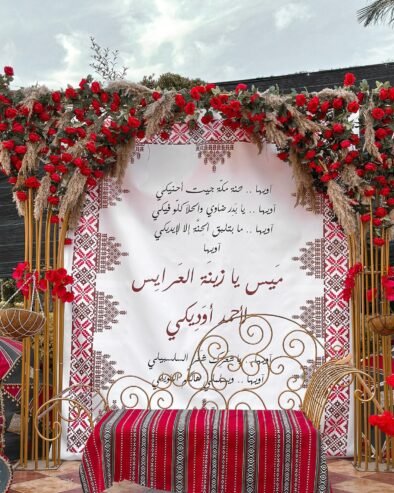 آويها .. حنة مكة جيت احنيكي
آويها .. يا بدر ضاوي والحلا كلو فيكي
آويها .. ما بتليق الحنّة إلا لإيديكي
آويها
ميس يا زينة العرايس
لأحمد أوديكي
آويها ..
آويها ..